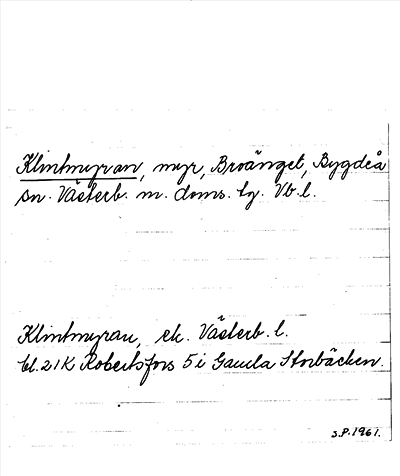 Klintmyran, myr, Broänget, Bygdeå
sn. Västerb. m. doms. lg. Vb. l.
Klintmyran, ek. Västerb. l.
bl. 21K Robertsfors 5 i Gamla Storbäcken.
S.P. 1961.